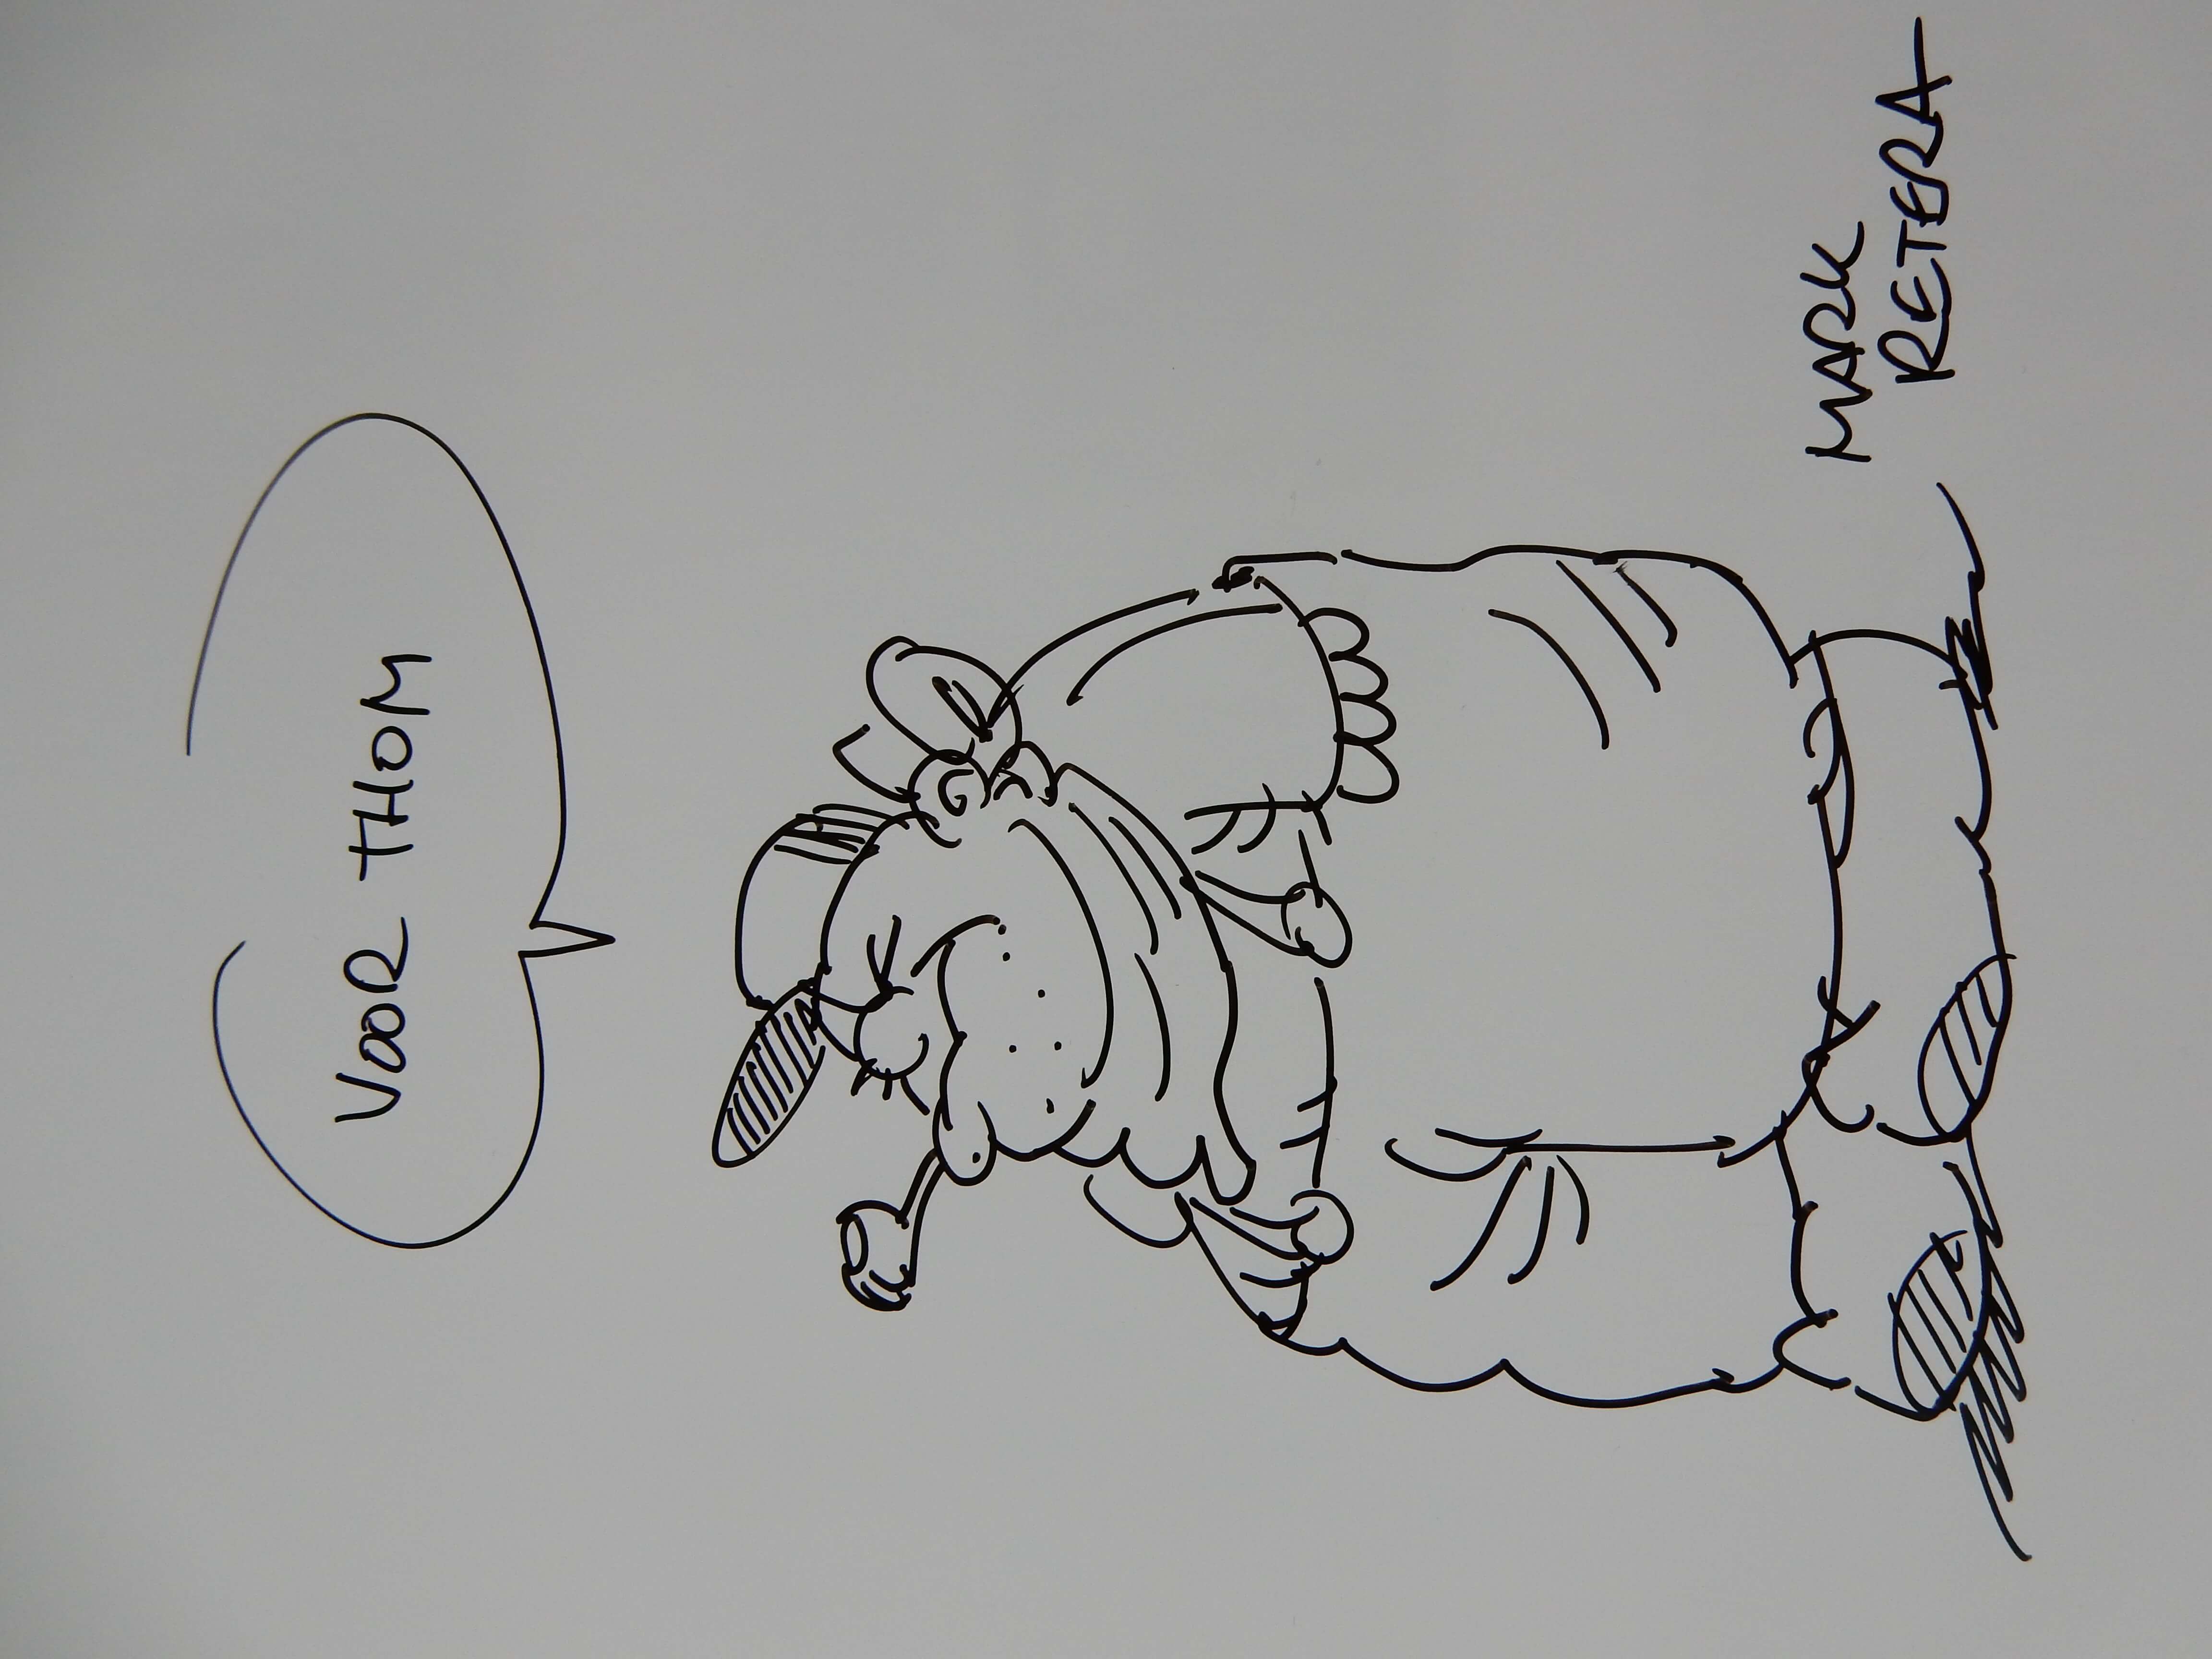 VOOR THOM
MARK
RETERA